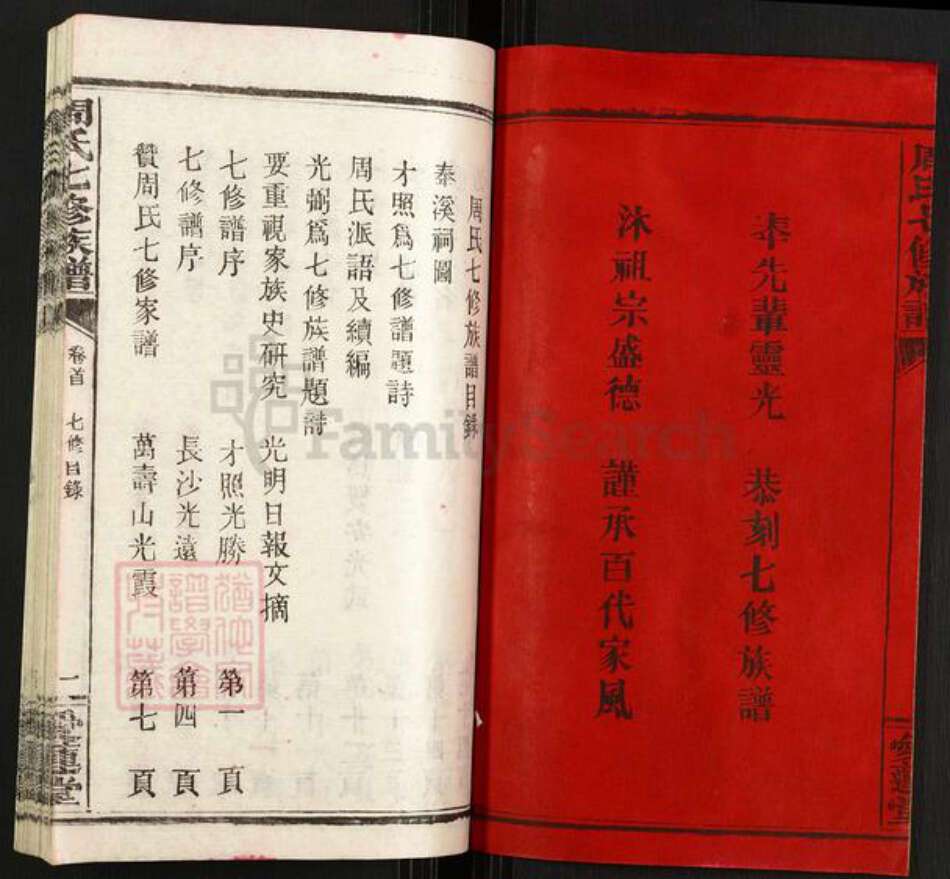 周氏七修族譜
奉先輩靈光 恭刻七修族譜
沐祖宗盛德 謹承百代家風
周氏七修族譜目錄
泰溪祠圖
才照爲七修譜題詩
周氏派語及續編
光弼爲七修族譜題詩
要重視家族史研究 光明日報文摘
七修譜序 才照光勝 第一頁
七修譜序 長沙光遠 第四頁
贊周氏七修家譜 萬壽山光霞 第七頁
周氏七修族譜 卷首 七修目錄 一 愛蓮堂
FamilySearch